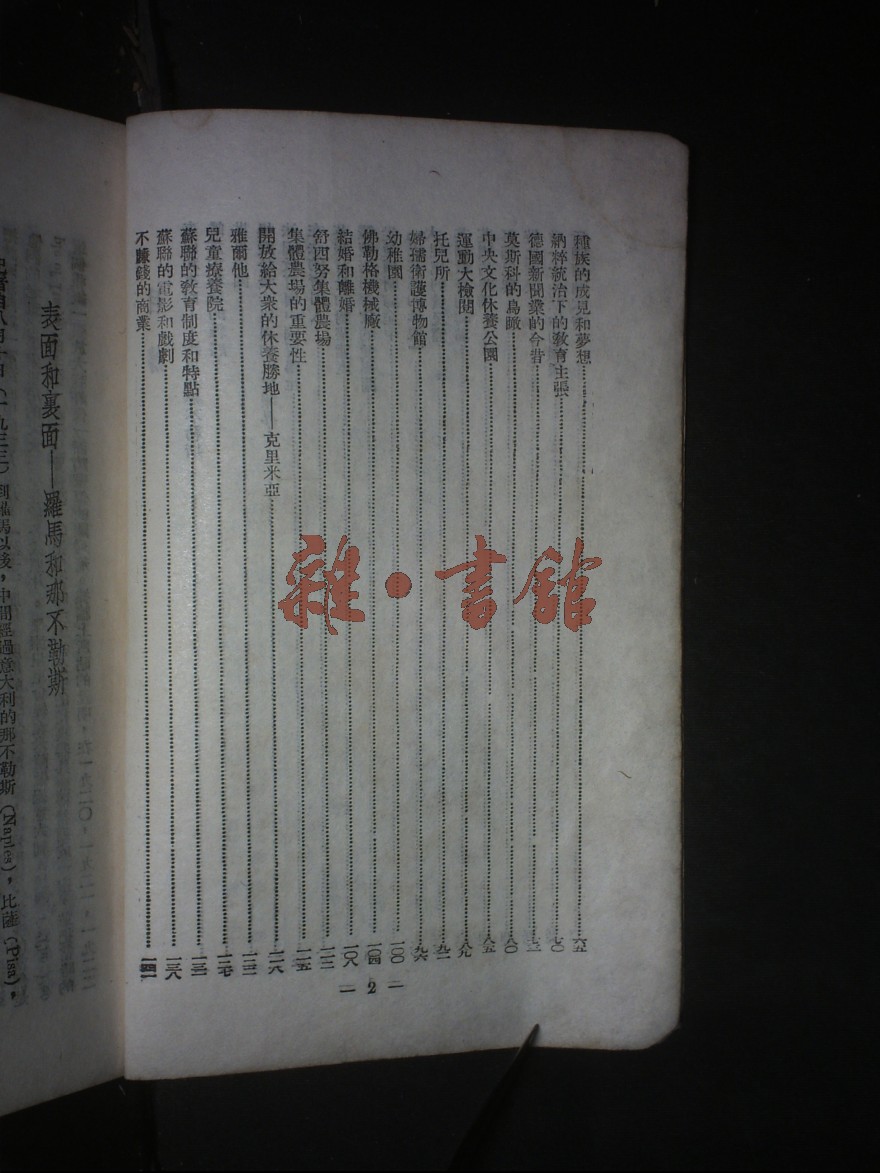 種族的成見和夢想……六五
納粹統治下的教育主張……七〇
德國新聞業的今昔……七三
莫斯科的鳥瞰……八〇
中央文化休養公園……八五
運動大檢閱……八九
托兒所……九二
婦孺衛護博物館……九六
幼稚園……一〇〇
佛勒格機械廠……一〇四
結婚和離婚……一〇八
舒西努集體農場……一一二
集體農場的重要性……一一五
開放給大衆的休養勝地——克里米亞……一一八
雅爾他……一二三
兒童療養院……一二七
蘇聯的教育制度和特點……一三二
蘇聯的電影和戲劇……一三八
不賺錢的商業……一四二
— 2 —
雜·書館
表面和裏面——羅馬和那不勒斯
八月十日(一九三三)到羅馬以後,中間經過意大利的那不勒斯(Naples),比薩(Pisa),